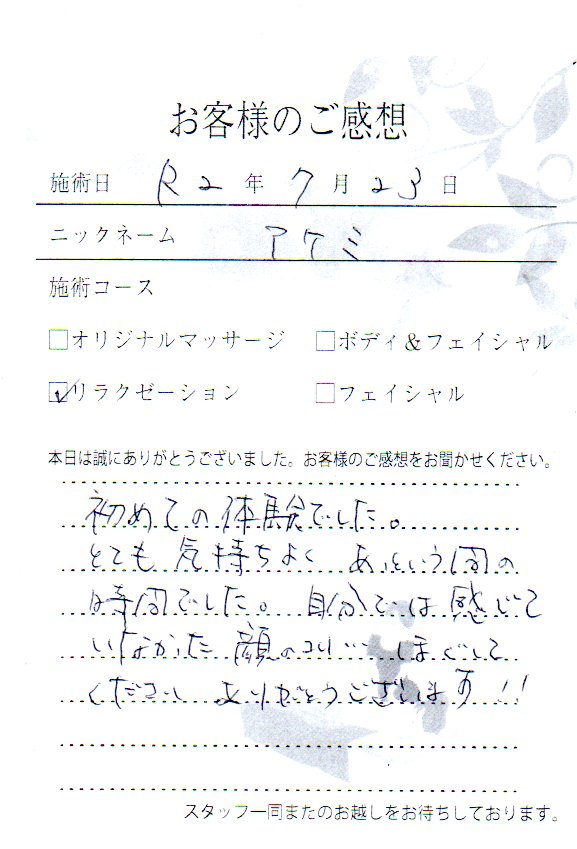 お客様のご感想
施術日 R2年7月23日
ニックネーム アケミ
施術コース
□オリジナルマッサージ □ボディ＆フェイシャル
☑リラクゼーション □フェイシャル
本日は誠にありがとうございました。お客様のご感想をお聞かせください。
初めての体験でした。
とても気持ちよく あっという間の
時間でした。自分では感じて
いなかった顔のコリ… ほぐして
ください ありがとうございます!!
スタッフ一同またのお越しをお待ちしております。